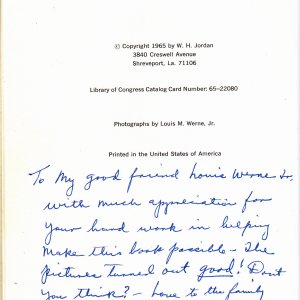 © Copyright 1965 by W. H. Jordan
3840 Creswell Avenue
Shreveport, La. 71106
Library of Congress Catalog Card Number: 65—22080
Photographs by Louis M. Werne, Jr.
Printed in the United States of America
To My good friend Louis Werne Jr.
with much appreciation for
your hard work in helping
make this book possible — The
pictures turned out good! Don't
you think? — Love to the family